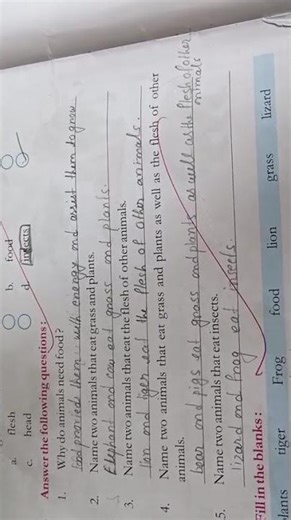 a. flesh b. food
c. head d. insects
Answer the following questions :
1. Why do animals need food?
food provides them with energy and assist them to grow
2. Name two animals that eat grass and plants.
Elephant and cow eat grass and plants.
3. Name two animals that eat the flesh of other animals.
lion and tiger eat the flesh of other animals.
4. Name two animals that eat grass and plants as well as the flesh of other
animals.
bear and pigs eat grass and plants as well as the flesh of other
animals
5. Name two animals that eat insects.
lizard and frog eat insects
Fill in the blanks :
plants tiger Frog food lion grass lizard